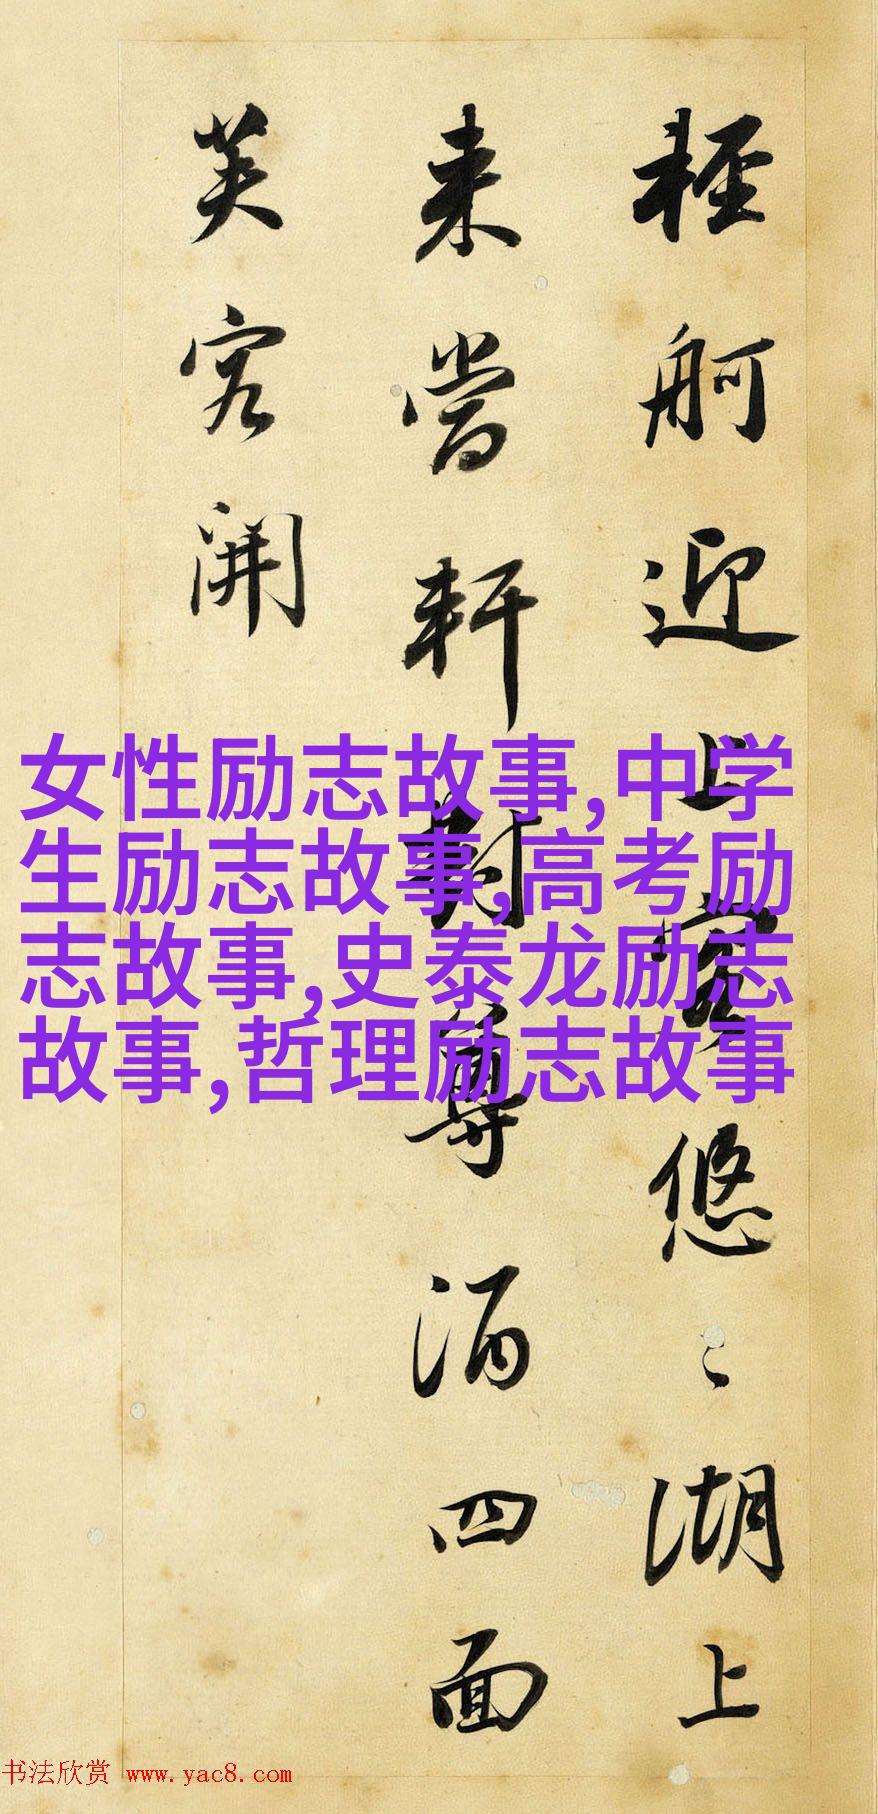 輕舸迎上客悠〻湖上
来當軒對尊酒四面
芙容開
女性励志故事,中学
生励志故事,高考励
志故事,史泰龙励志
故事,哲理励志故事
书法欣赏 www.yac8.com